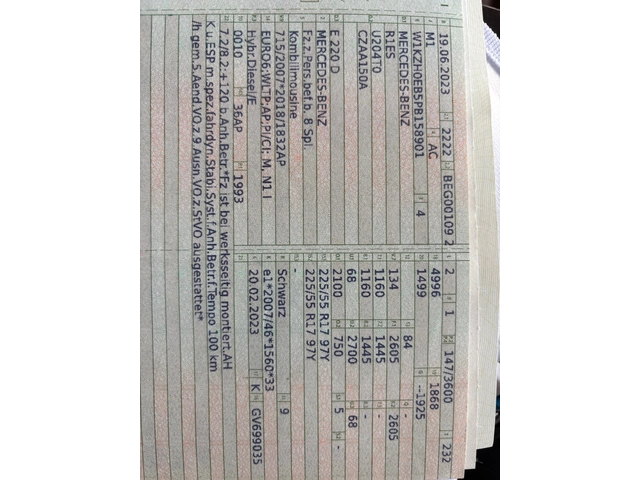 19.06.2023 2222 BEG00109 2
M1 AC
W1KZH0EB5PB158901 4
MERCEDES-BENZ
R1ES
U20410
CZAA150A
E 220 D
MERCEDES-BENZ
Fz.z.Pers.bef.b. 8 Spl.
Kombilimousine
715/2007*2018/1832AP
EURO6;WLTP;AP;PI/CI; M, N1 I
Hybr.Diesel/E
0010 36AP 1993
7.2/8.2:+120 b.Anh.Betr.*Fz ist bei werksseitig montiert.AH
K u.ESP m.spez.fahrdyn.Stabi.Syst.f.Anh.Betr.f.Tempo 100 km
/h gem.5.Aend.VO.z 9.Ausn.VO.z.StVO ausgestattet*
2 1 147/3600 232
4996 1868
1499 --1925
84 -
134 2605 2605
1160 1445 -
1160 1445 -
68 2700 68
2100 750 5 -
225/55 R17 97Y
225/55 R17 97Y
-
Schwarz 9
e1*2007/46*1560*33
20.02.2023 K GV699035